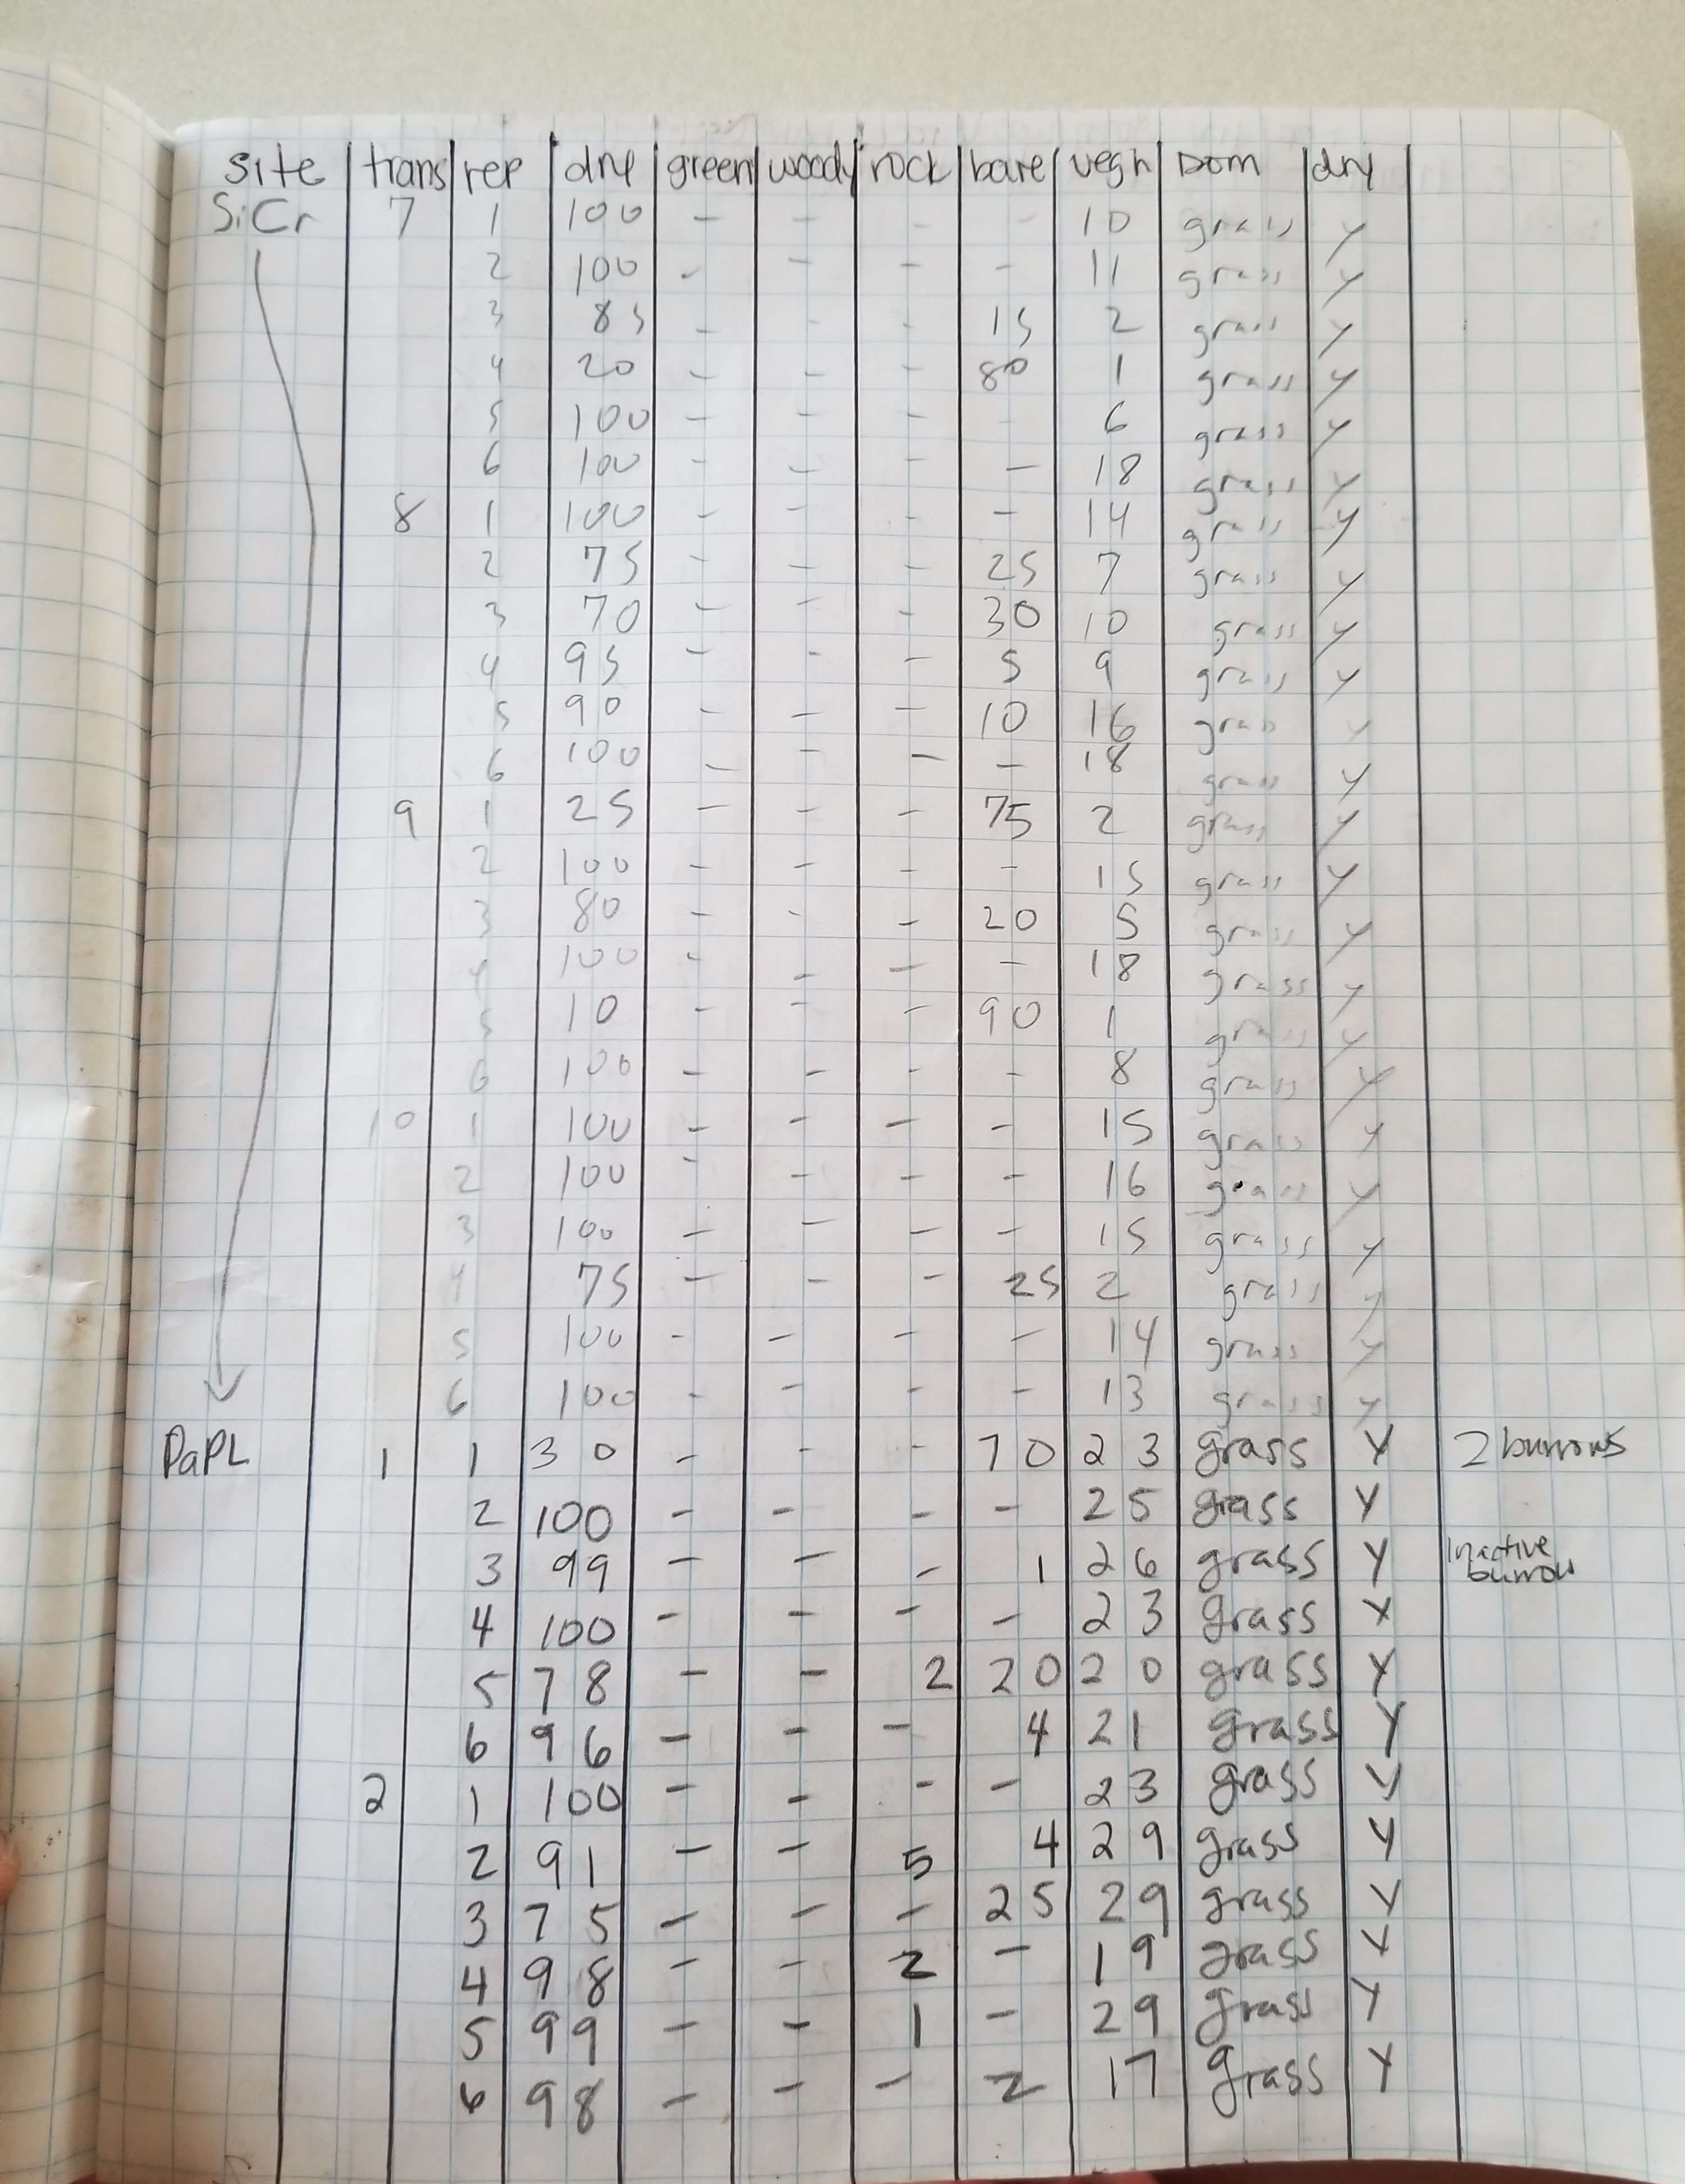 site trans rep dry green woody rock bare vegh Dom dry
SiCr 7 1 100 - - - - 10 grass y
2 100 - - - - 11 grass y
3 85 - - - 15 2 grass y
4 20 - - - 80 1 grass y
5 100 - - - - 6 grass y
6 100 - - - - 18 grass y
8 1 100 - - - - 14 grass y
2 75 - - - 25 7 grass y
3 70 - - - 30 10 grass y
4 95 - - - 5 9 grass y
5 90 - - - 10 16 grass y
6 100 - - - - 18 grass y
9 1 25 - - - 75 2 grass y
2 100 - - - - 15 grass y
3 80 - - - 20 5 grass y
4 100 - - - - 18 grass y
5 10 - - - 90 1 grass y
6 100 - - - - 8 grass y
10 1 100 - - - - 15 grass y
2 100 - - - - 16 grass y
3 100 - - - - 15 grass y
4 75 - - - 25 2 grass y
5 100 - - - - 14 grass y
6 100 - - - - 13 grass y
PaPL 1 1 30 - - - 70 23 grass y 2 burrows
2 100 - - - - 25 grass y
3 99 - - - 1 26 grass y Inactive burrow
4 100 - - - - 23 grass y
5 78 - - 2 20 20 grass y
6 96 - - - 4 21 grass y
2 1 100 - - - - 23 grass y
2 91 - - 5 4 29 grass y
3 75 - - - 25 29 grass y
4 98 - - 2 - 19 grass y
5 99 - - 1 - 29 grass y
6 98 - - - 2 17 grass y